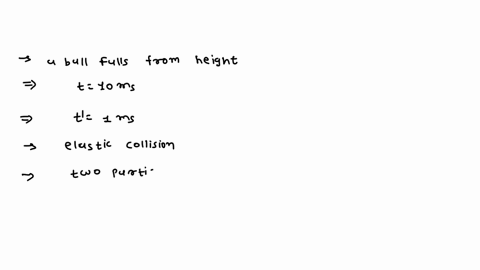 → a ball falls from height
⇒ t = 10 ms
⇒ t' = 1 ms
→ elastic collision
⇒ two parti